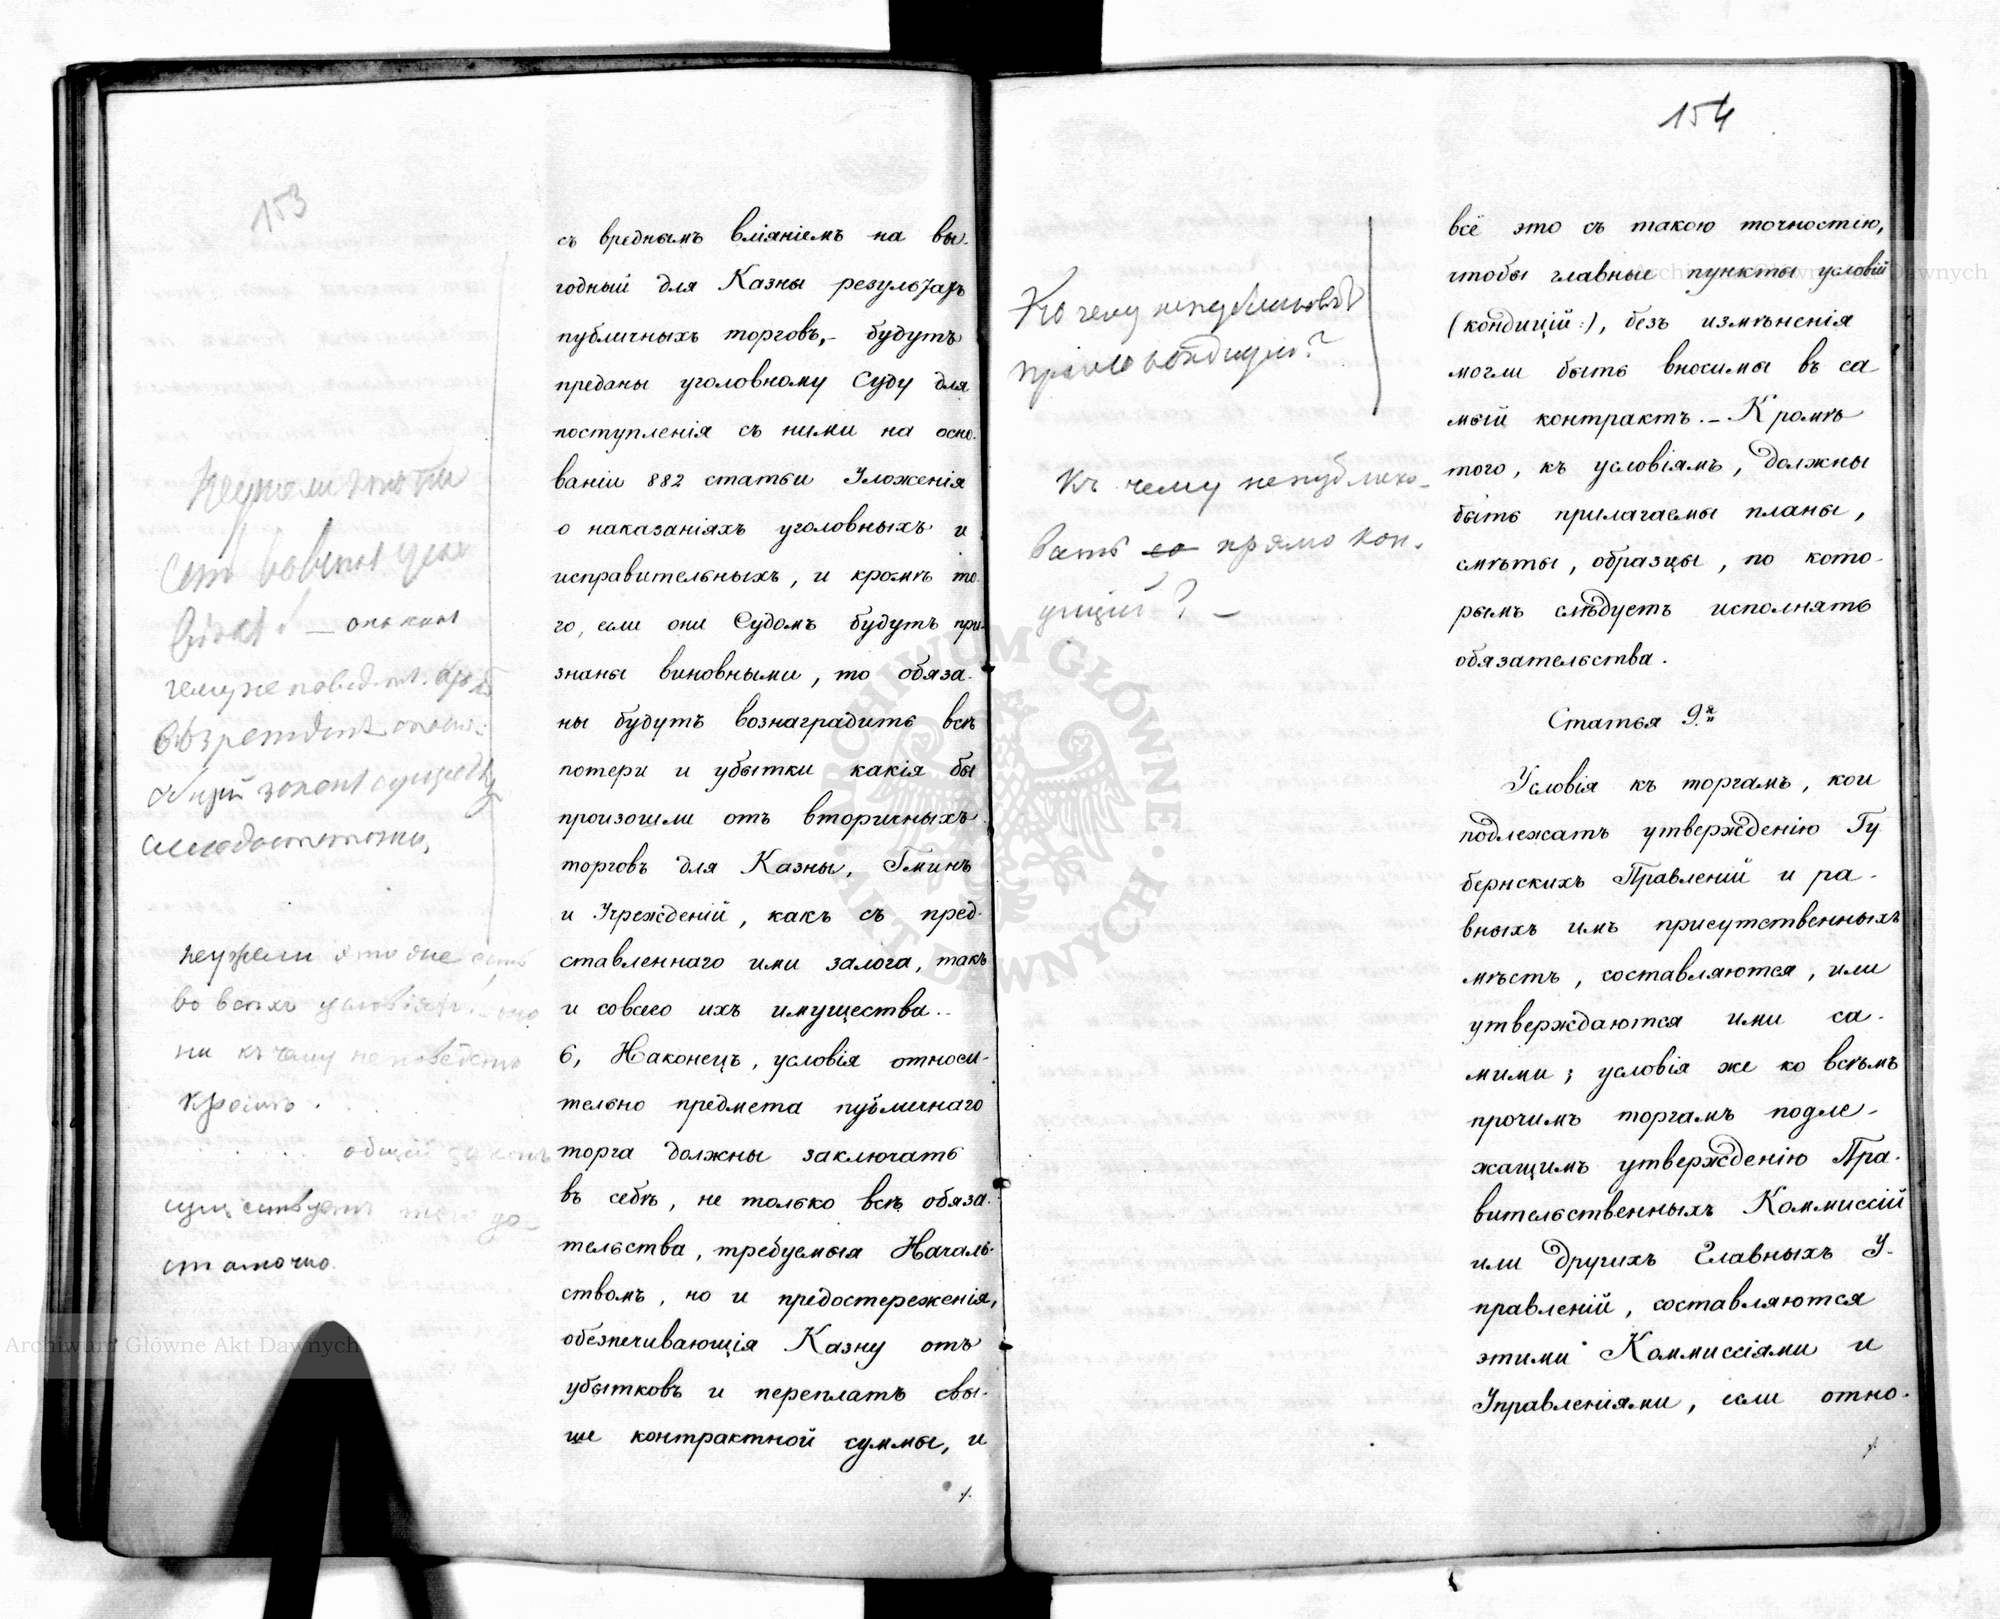 153
съ вреднымъ вліяніемъ на вы-
годный для Казны результатъ
публичныхъ торговъ,- будутъ
преданы уголовному Суду для
поступленія съ ними на осно-
ваніи 882 статьи Уложенія
о наказаніяхъ уголовныхъ и
исправительныхъ, и кромѣ то-
го, если они Судомъ будутъ при-
знаны виновными, то обяза-
ны будутъ вознаградить всѣ
потери и убытки какія бы
произошли отъ вторичныхъ
торговъ для Казны, Гминъ
и Учрежденій, какъ съ пред-
ставленнаго ими залога, такъ
и совсего ихъ имущества..
6, Наконецъ, условія относи-
тельно предмета публичнаго
торга должны заключать
въ себѣ, не только всѣ обяза-
тельства, требуемыя Началь-
ствомъ, но и предостереженія,
обезпечивающія Казну отъ
убытковъ и переплатъ свы-
ше контрактной суммы, и
неужели это не
во всѣхъ условіяхъ
ни къ чему не поведетъ
кромѣ
общій законъ
существуетъ до-
статочно.
154
Къ чему непублико-
вать со прямо кон-
дицій? -
всё это съ такою точностію,
чтобы главные пункты условій
(кондицій:), безъ измѣненія
могли быть вносимы въ са
мый контрактъ.- Кромѣ
того, къ условіямъ, должны
быть прилагаемы планы,
смѣты, образцы, по кото-
рымъ слѣдуетъ исполнять
обязательства.
Статья 9.я
Условія къ торгамъ, кои
подлежатъ утвержденію Гу
бернскихъ Правленій и ра-
вныхъ имъ присутственныхъ
мѣстъ, составляются, или
утверждаются ими са-
мими; условія же ко всѣмъ
прочимъ торгамъ подле-
жащимъ утвержденію Пра-
вительственныхъ Коммиссій
или другихъ Главныхъ У-
правленій, составляются
этими Коммиссіями и
Управленіями, если отно-
Archiwum Główne Akt Dawnych
Archiwum Główne Akt Dawnych
ARCHIWUM GŁÓWNE AKT DAWNYCH